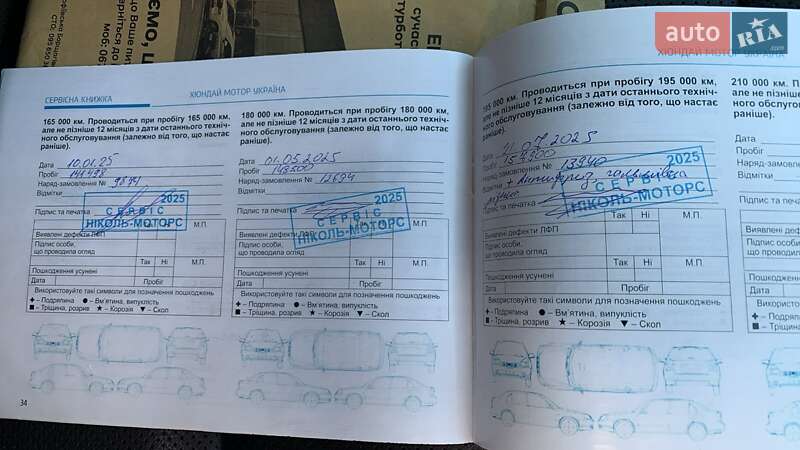 ємо, ш
що Ваше пит
ерніться до
СТО: 095 650 3
моб: 06
сучас
турбот
auto RIA
.com
СЕРВІСНА КНИЖКА
ХЮНДАЙ МОТОР УКРАЇНА
165 000 км. Проводиться при пробігу 165 000 км,
але не пізніше 12 місяців з дати останнього техніч-
ного обслуговування (залежно від того, що настає
раніше).
Дата 10.01.25
Пробіг
Наряд-замовлення №
Відмітки
Підпис та печатка
2025
СЕРВІС
НІКОЛЬ-МОТОРС
М.П.
Виявлені дефекти ЛФП
Підпис особи,
що проводила огляд
Пошкодження усунені
М.П.
Дата
Пробіг
Використовуйте такі символи для позначення пошкоджень
+ – Подряпина ● – Вм'ятина, випуклість
■ – Тріщина, розрив ★ – Корозія ▼ – Скол
34
180 000 км. Проводиться при пробігу 180 000 км,
але не пізніше 12 місяців з дати останнього техніч-
ного обслуговування (залежно від того, що настає
раніше).
Дата 01.05.2025
Пробіг
Наряд-замовлення № 12694
Відмітки
Підпис та печатка
2025
СЕРВІС
НІКОЛЬ-МОТОРС
М.П.
Підпис особи,
що проводила огляд
Так Ні
Пошкодження усунені
М.П.
Дата
Пробіг
Використовуйте такі символи для позначення пошкоджень
+ – Подряпина ● – Вм'ятина, випуклість
■ – Тріщина, розрив ★ – Корозія ▼ – Скол
ХЮНДАЙ МОТОР УКРАЇНА
195 000 км. Проводиться при пробігу 195 000 км,
але не пізніше 12 місяців з дати останнього техніч-
ного обслуговування (залежно від того, що настає
раніше).
Дата 07.2025
Пробіг
Наряд-замовлення № 13940
Відмітки
Підпис та печатка
2025
СЕРВІС
НІКОЛЬ-МОТОРС
Так Ні М.П.
Виявлені дефекти ЛФП
Підпис особи,
що проводила огляд
Так Ні
Пошкодження усунені
М.П.
Дата
Пробіг
Використовуйте такі символи для позначення пошкоджень
+ – Подряпина ● – Вм'ятина, випуклість
■ – Тріщина, розрив ★ – Корозія ▼ – Скол
210 000 км. П
але не пізніше
ного обслугов
раніше).
Дата
Пробіг
Наряд-замовле
Відмітки
Підпис та печат
Виявлені дефе
Підпис особи,
що проводила
Пошкодження
Дата
Використовує
+ – Подряпин
■ – Тріщина